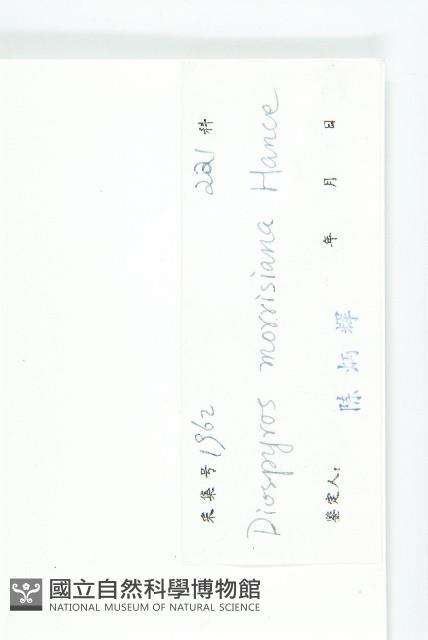 采集号 1962 221 科
Diospyros morrisiana Hance
鉴定人: 陈炳辉 年 月 日
國立自然科學博物館
NATIONAL MUSEUM OF NATURAL SCIENCE